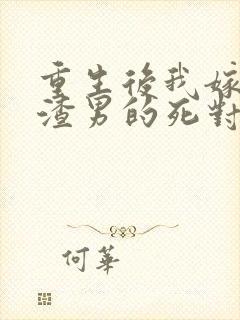 重生後我嫁
渣男的死對
何華